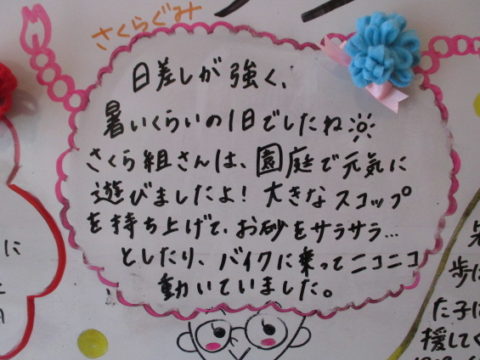 さくらぐみ
日差しが強く、
暑いくらいの1日でしたね
さくら組さんは、園庭で元気に
遊びましたよ！大きなスコップ
を持ち上げて、お砂をサラサラ…
としたり、バイクに乗ってニコニコ
動いていました。
に
歩に
た子に
援してく